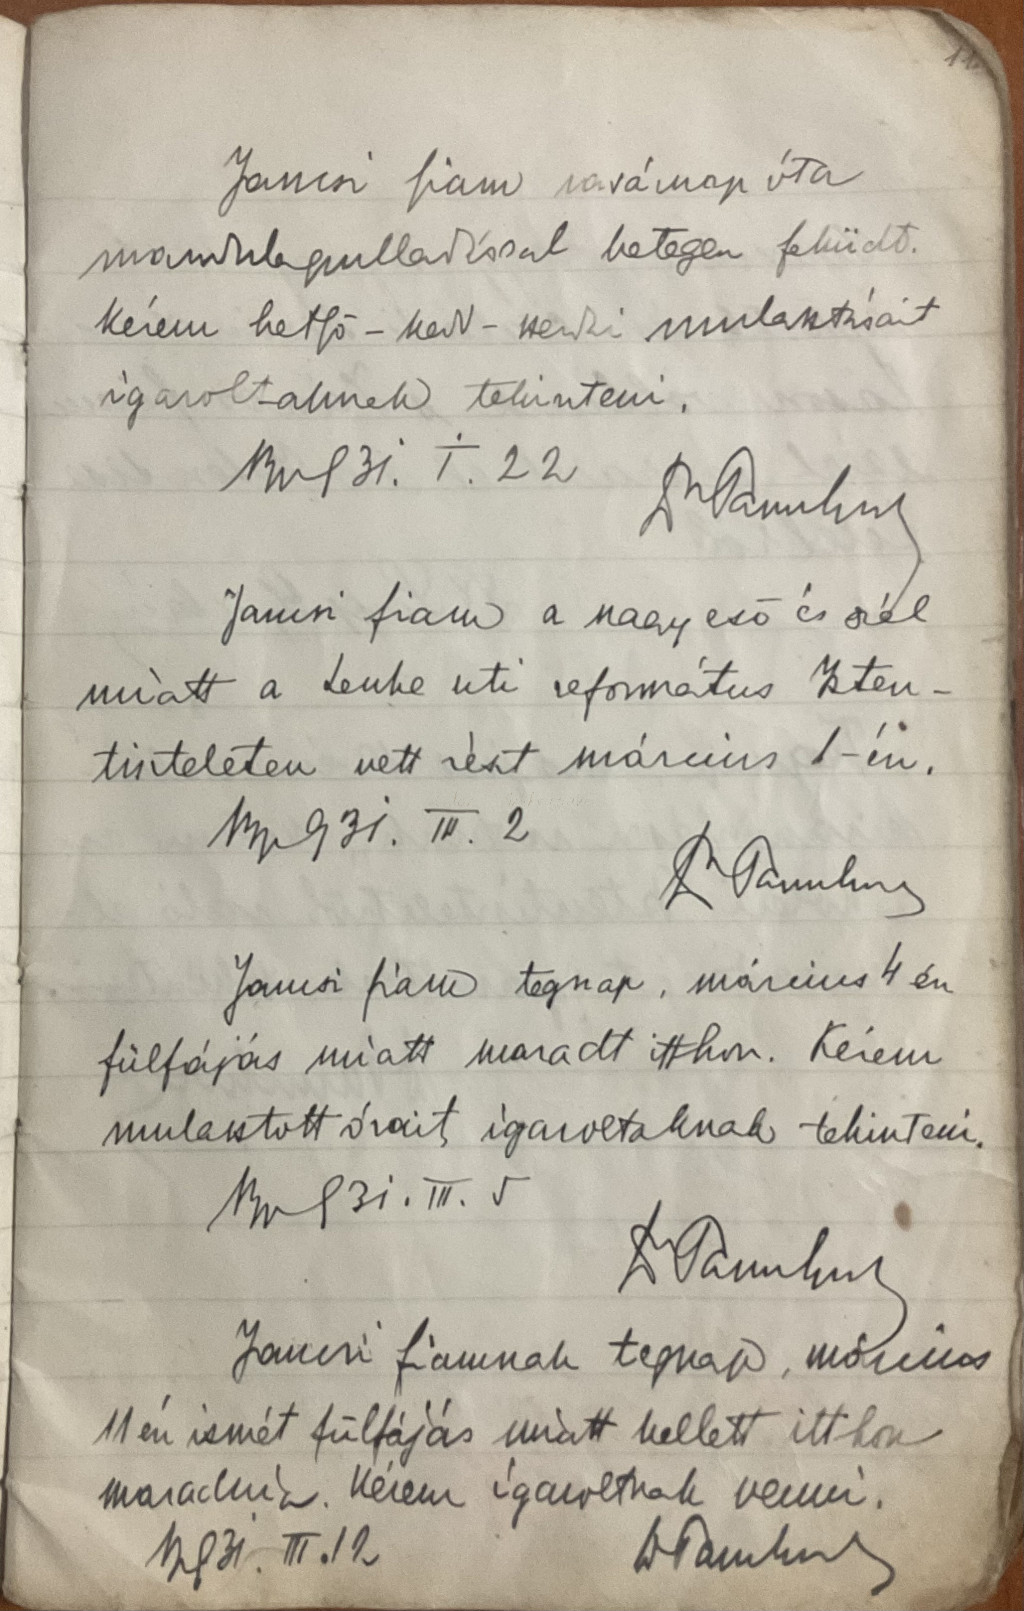 Jancsi fiam vasárnap óta
mandulagyulladással betegen feküdt.
Kérem hétfő – kedd – szerdai mulasztásait
igazoltaknak tekinteni.
Bp 931. I. 22
Dr
Jancsi fiam a nagy eső és szél
miatt a Lenke uti református Isten-
tiszteleten vett részt március 1-én.
Bp 931. III. 2
Dr
Jancsi fiam tegnap, március 4 én
fülfájás miatt maradt itthon. Kérem
mulasztott óráit igazoltaknak tekinteni.
Bp 931. III. 5
Dr
Jancsi fiamnak tegnap, március
11 én ismét fülfájás miatt kellett itthon
maradnia. Kérem igazoltnak venni.
Bp 931. III. 12
Dr